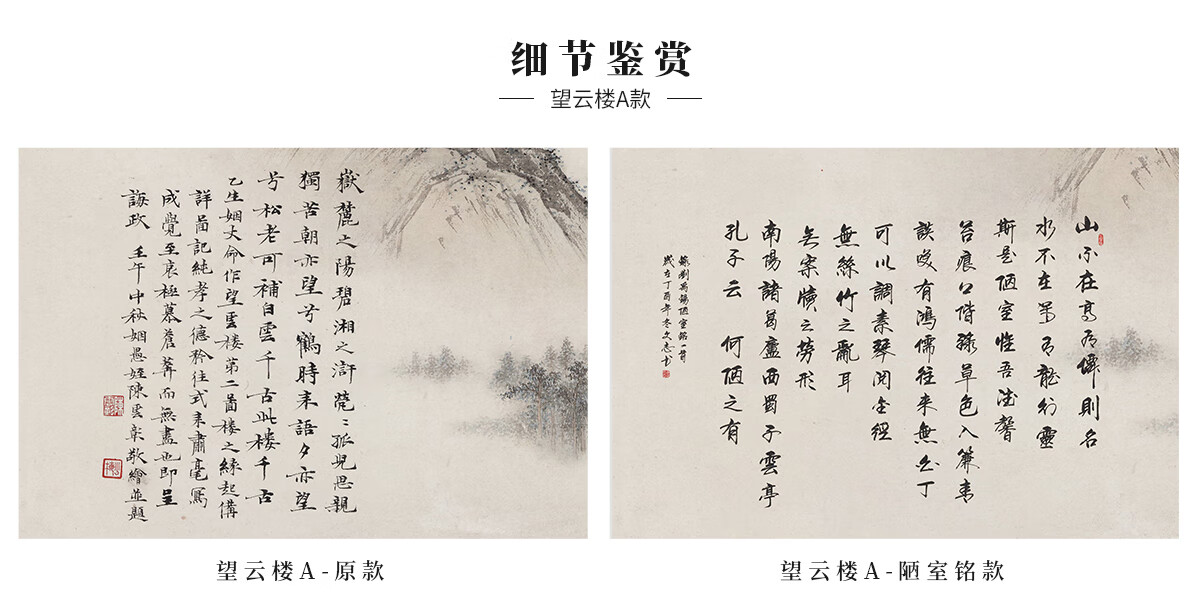 细节鉴赏
望云楼A款
嶽麓之陽碧湘之滸茕〻孤兒思親
獨苦朝亦望兮鶴時来語夕亦望
兮松老可補白雲千古此楼千古
乙生姻丈命作望雲楼第二啚楼之緣起備
詳啚記純孝之德矜往式来肅毫寫
成覺至哀極慕蒼莽而無盡也即呈
誨政 壬午中秋姻愚姪陳雲彰敬繪並題
山不在高有僊則名
水不在深有龍則靈
斯是陋室惟吾德馨
苔痕上階綠草色入簾青
談笑有鴻儒往来無白丁
可以調素琴閱金經
無絲竹之亂耳
無案牘之勞形
南陽諸葛廬西蜀子雲亭
孔子云 何陋之有
錄劉禹錫陋室銘一首
歲在丁酉年冬文志书
望云楼A-原款
望云楼A-陋室铭款